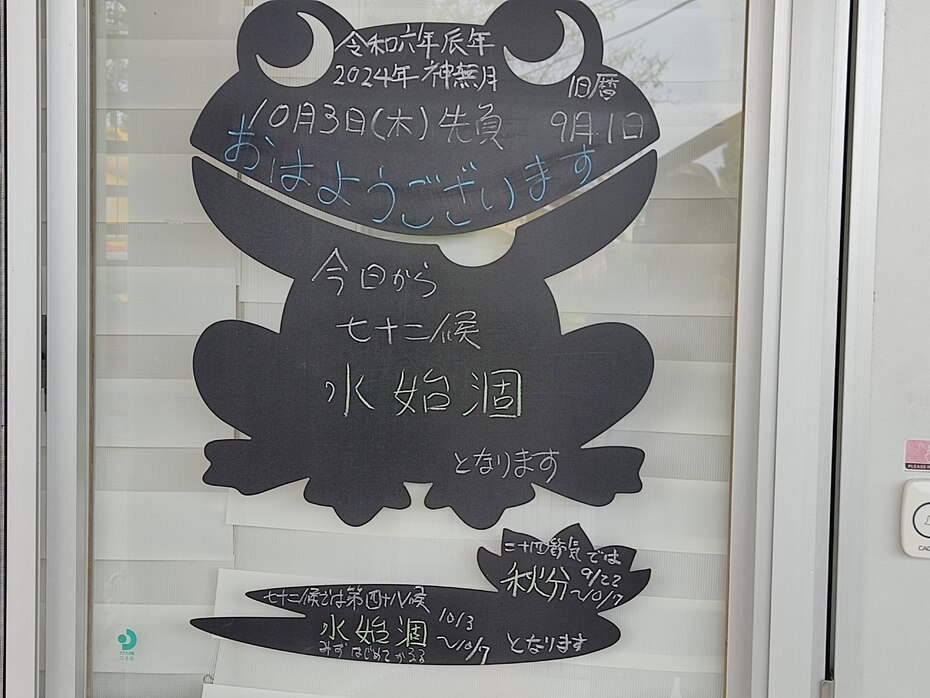 令和六年辰年
2024年 神無月
旧暦
10月3日(木)先負 9月1日
おはようございます
今日から
七十二候
水始涸
となります
二十四節気では
秋分 9/22
~10/7
七十二候では第四十八候
水始涸 10/3
~10/7 となります
みずはじめてかるる